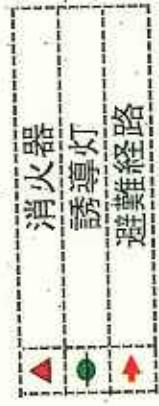 消火器
誘導灯
避難経路